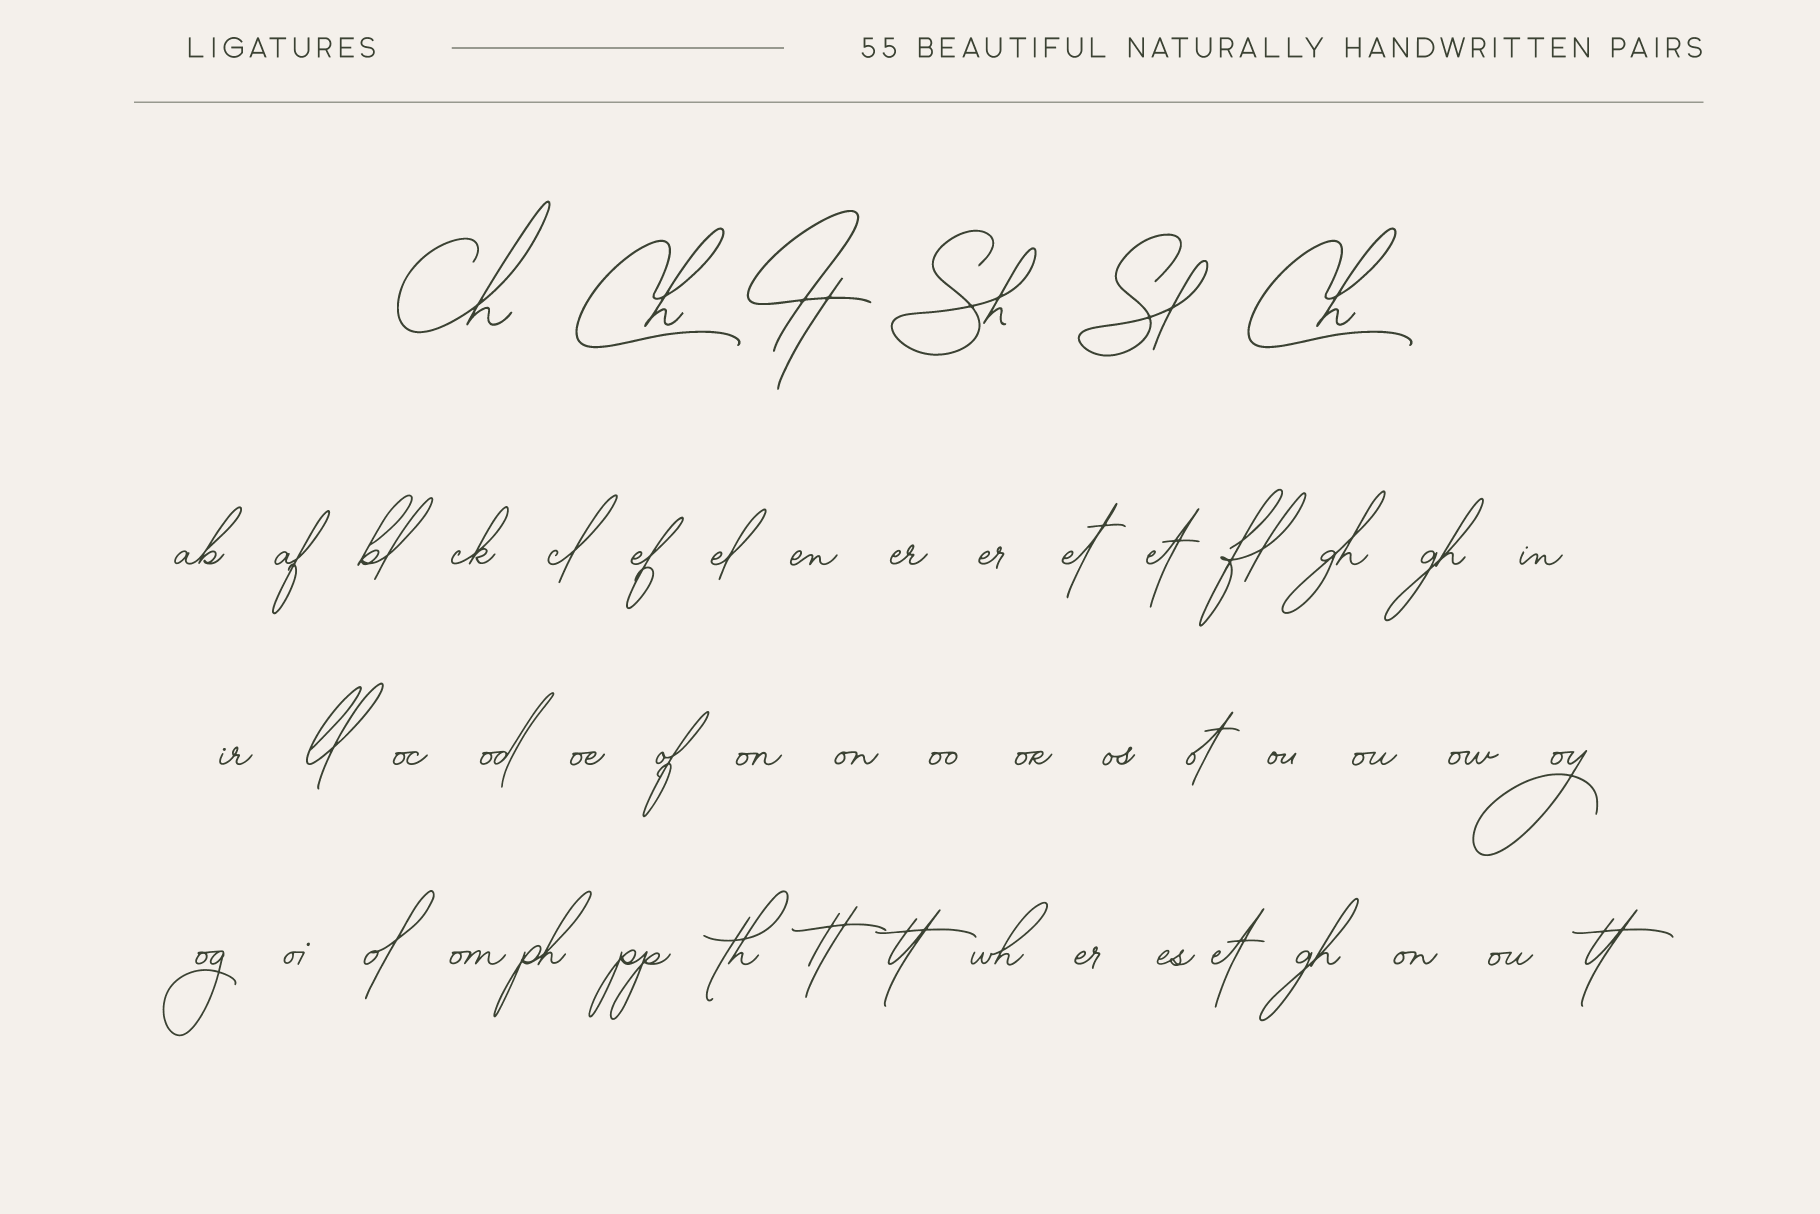 LIGATURES 55 BEAUTIFUL NATURALLY HANDWRITTEN PAIRS
Ch Ch Sh Sl Ch
ab af bl ck cl ef el en er er et et fl gh gh in
ir ll oc od oe of on on oo or os ot ou ou ow oy
og oi ol om ph pp th tt tt wh er es et gh on ou tt